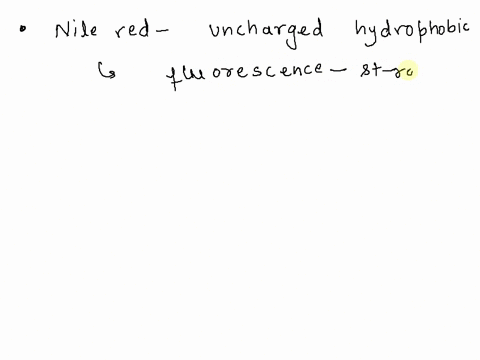 • Nile red - uncharged hydrophobic
↳ fluorescence - stro